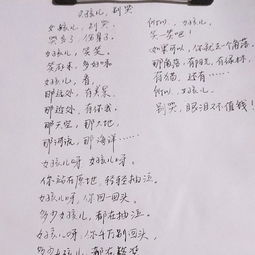 女孩儿,别哭
女孩儿,别哭。
哭多了,伤身子。
女孩儿,笑笑。
笑起来,多好呀
女孩儿,看,
那远处,有美景
那近处,有你我
那天空,那大地,
那河流,那海洋……
女孩儿呀,女孩儿呀,
你站在原地,轻轻抽泣。
女孩儿呀,你回一回头,
多少女孩儿,都在抽泣。
女孩儿呀,你千万别回头,
多少女孩儿,都在
何以,女孩儿。
笑一笑吧!
如果可以,你就去一个角落,
那角落,有阳光,有绿林,
有方糖,还有……
何以,女孩儿
别哭,眼泪不值钱!